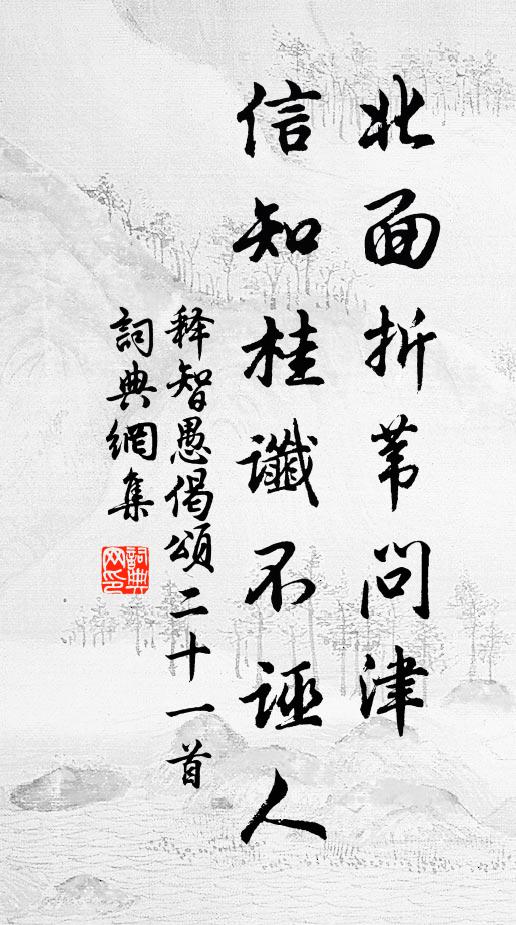 北面折苇问津
信知桂谶不诬人
释智愚偈颂二十一首
词典網集
詞典
网印